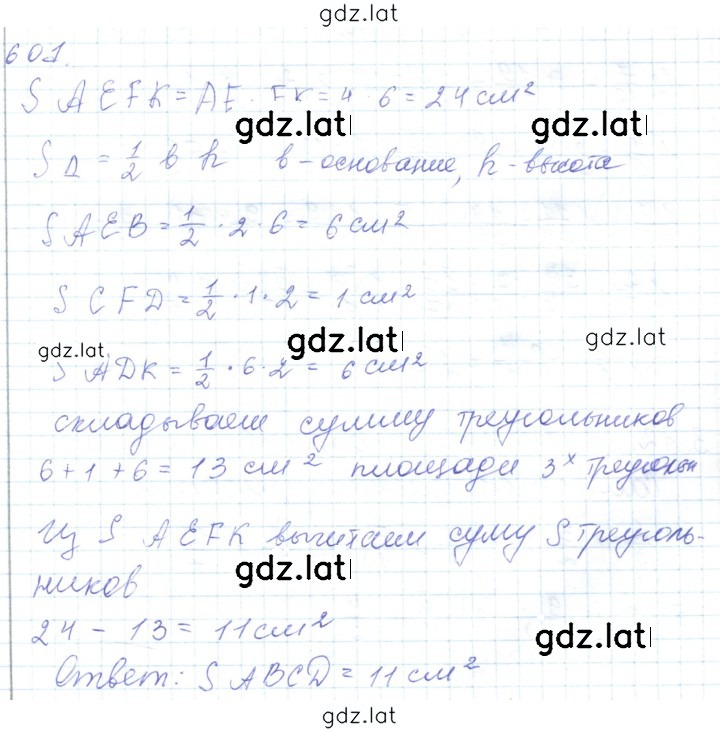 gdz.lat
601.
S AEFK = AE · FK = 4 · 6 = 24 см²
gdz.lat gdz.lat
S Δ = 1/2 b h b - основание, h - высота
S AEB = 1/2 · 2 · 6 = 6 см²
S CFD = 1/2 · 1 · 2 = 1 см²
gdz.lat gdz.lat gdz.lat
S ADK = 1/2 · 6 · 2 = 6 см²
складываем сумму треугольников
6 + 1 + 6 = 13 см² площади 3х треугольн
Из S AEFK вычитаем суму S треуголь-
gdz.lat
ников
24 - 13 = 11 см²
gdz.lat
Ответ: S ABCD = 11 см²
gdz.lat